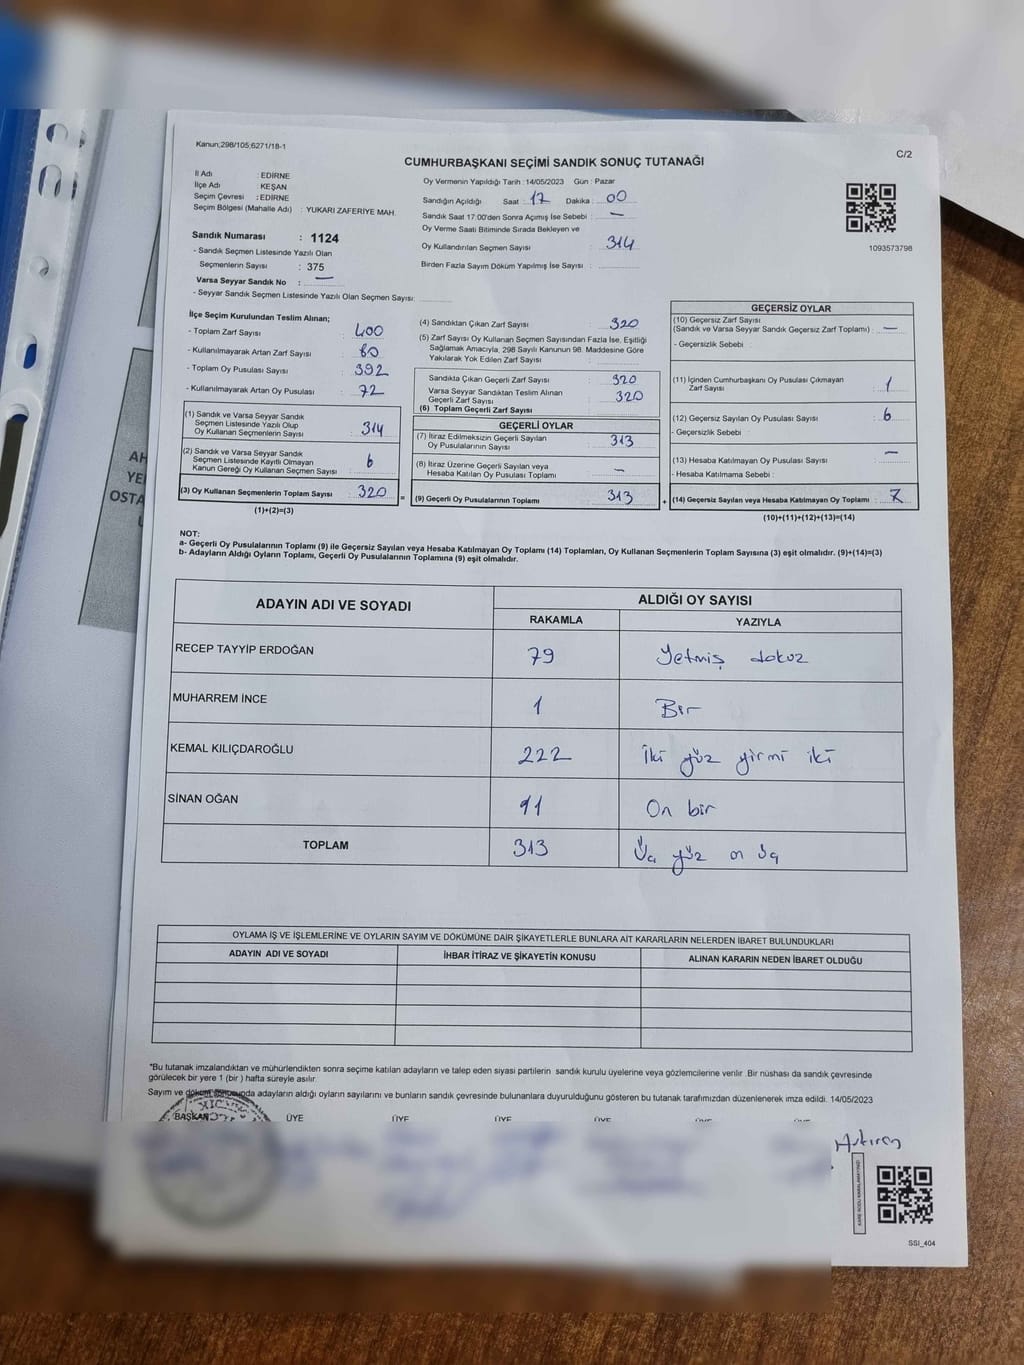 Kanun;298/105;6271/18-1
C/2
CUMHURBAŞKANI SEÇİMİ SANDIK SONUÇ TUTANAĞI
İl Adı : EDİRNE
İlçe Adı : KEŞAN
Seçim Çevresi : EDİRNE
Seçim Bölgesi (Mahalle Adı) : YUKARI ZAFERİYE MAH.
Sandık Numarası : 1124
- Sandık Seçmen Listesinde Yazılı Olan
Seçmenlerin Sayısı : 375
Varsa Seyyar Sandık No : —
- Seyyar Sandık Seçmen Listesinde Yazılı Olan Seçmen Sayısı:
Oy Vermenin Yapıldığı Tarih :14/05/2023 Gün : Pazar
Sandığın Açıldığı Saat 17 Dakika 00
Sandık Saat 17:00'den Sonra Açımış İse Sebebi : —
Oy Verme Saati Bitiminde Sırada Bekleyen ve
Oy Kullandırılan Seçmen Sayısı 314
Birden Fazla Sayım Döküm Yapılmış İse Sayısı :
1093573798
İlçe Seçim Kurulundan Teslim Alınan;
- Toplam Zarf Sayısı : 400
- Kullanılmayarak Artan Zarf Sayısı : 80
- Toplam Oy Pusulası Sayısı : 392
- Kullanılmayarak Artan Oy Pusulası : 72
(1) Sandık ve Varsa Seyyar Sandık
Seçmen Listesinde Yazılı Olup
Oy Kullanan Seçmenlerin Sayısı : 314
(2) Sandık ve Varsa Seyyar Sandık
Seçmen Listesinde Kayıtlı Olmayan
Kanun Gereği Oy Kullanan Seçmen Sayısı : 6
(3) Oy Kullanan Seçmenlerin Toplam Sayısı : 320
(1)+(2)=(3)
=
(4) Sandıktan Çıkan Zarf Sayısı : 320
(5) Zarf Sayısı Oy Kullanan Seçmen Sayısından Fazla İse, Eşitliği
Sağlamak Amacıyla, 298 Sayılı Kanunun 98. Maddesine Göre
Yakılarak Yok Edilen Zarf Sayısı :
Sandıkta Çıkan Geçerli Zarf Sayısı : 320
Varsa Seyyar Sandıktan Teslim Alınan
Geçerli Zarf Sayısı : 320
(6) Toplam Geçerli Zarf Sayısı :
GEÇERLİ OYLAR
(7) İtiraz Edilmeksizin Geçerli Sayılan
Oy Pusulalarının Sayısı : 313
(8) İtiraz Üzerine Geçerli Sayılan veya
Hesaba Katılan Oy Pusulası Toplamı : —
(9) Geçerli Oy Pusulalarının Toplamı : 313
+
GEÇERSİZ OYLAR
(10) Geçersiz Zarf Sayısı
(Sandık ve Varsa Seyyar Sandık Geçersiz Zarf Toplamı) : —
- Geçersizlik Sebebi :
(11) İçinden Cumhurbaşkanı Oy Pusulası Çıkmayan
Zarf Sayısı : 1
(12) Geçersiz Sayılan Oy Pusulası Sayısı : 6
- Geçersizlik Sebebi :
(13) Hesaba Katılmayan Oy Pusulası Sayısı : —
- Hesaba Katılmama Sebebi :
(14) Geçersiz Sayılan veya Hesaba Katılmayan Oy Toplamı : 7
(10)+(11)+(12)+(13)=(14)
NOT:
a- Geçerli Oy Pusulalarının Toplamı (9) ile Geçersiz Sayılan veya Hesaba Katılmayan Oy Toplamı (14) Toplamları, Oy Kullanan Seçmenlerin Toplam Sayısına (3) eşit olmalıdır. (9)+(14)=(3)
b- Adayların Aldığı Oyların Toplamı, Geçerli Oy Pusulalarının Toplamına (9) eşit olmalıdır.
ADAYIN ADI VE SOYADI ALDIĞI OY SAYISI
RAKAMLA YAZIYLA
RECEP TAYYİP ERDOĞAN 79 Yetmiş dokuz
MUHARREM İNCE 1 Bir
KEMAL KILIÇDAROĞLU 222 İki yüz yirmi iki
SİNAN OĞAN 11 On bir
TOPLAM 313 Üç yüz on üç
OYLAMA İŞ VE İŞLEMLERİNE VE OYLARIN SAYIM VE DÖKÜMÜNE DAİR ŞİKAYETLERLE BUNLARA AİT KARARLARIN NELERDEN İBARET BULUNDUKLARI
ADAYIN ADI VE SOYADI İHBAR İTİRAZ VE ŞİKAYETİN KONUSU ALINAN KARARIN NEDEN İBARET OLDUĞU
*Bu tutanak imzalandıktan ve mühürlendikten sonra seçime katılan adayların ve talep eden siyasi partilerin sandık kurulu üyelerine veya gözlemcilerine verilir .Bir nüshası da sandık çevresinde
görülecek bir yere 1 (bir ) hafta süreyle asılır.
Sayım ve döküm sonucunda adayların aldığı oyların sayılarını ve bunların sandık çevresinde bulunanlara duyurulduğunu gösteren bu tutanak tarafımızdan düzenlenerek imza edildi. 14/05/2023
BAŞKAN ÜYE ÜYE ÜYE ÜYE ÜYE ÜYE
SSI_404